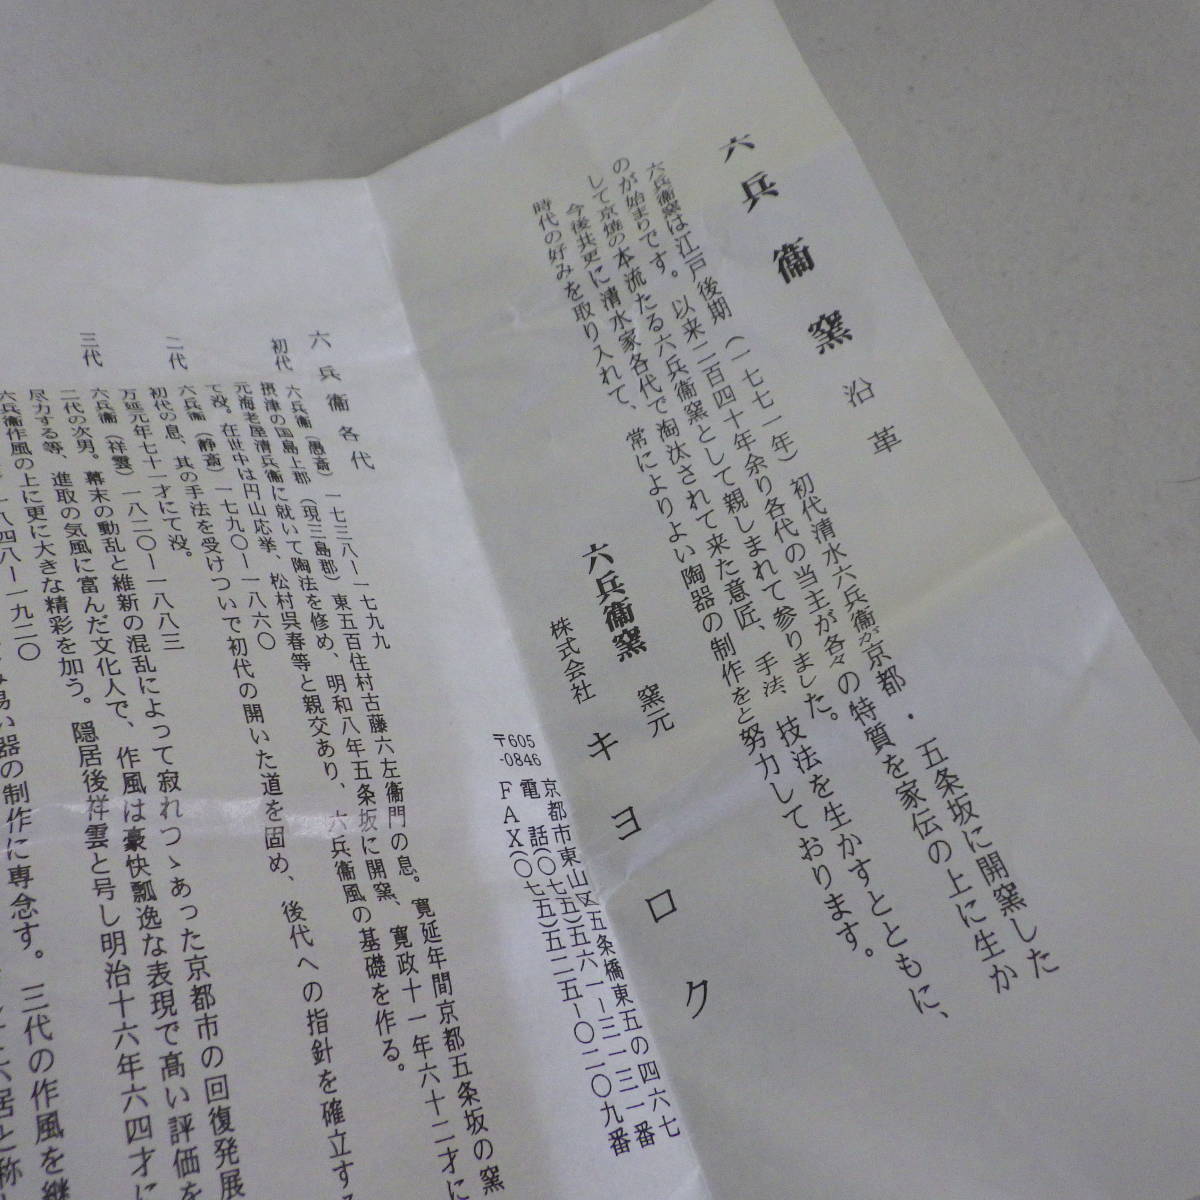 六兵衞窯 沿革
六兵衞窯は江戸後期（一七七一年）初代清水六兵衞が京都・五条坂に開窯した
のが始まりです。以来二百四十年余り各代の当主が各々の特質を家伝の上に生か
して京焼の本流たる六兵衞窯として親しまれて参りました。
今後共更に清水家各代で淘汰されて来た意匠、手法、技法を生かすとともに、
時代の好みを取り入れて、常によりよい陶器の制作をと努力しております。
六兵衞窯 窯元
株式会社 キヨロク
〒605-0846 京都市東山区五条橋東五の四六七
電話(〇七五)五六一ー三一三一番
FAX(〇七五)五二五ー〇二〇九番
六兵衞各代
初代 六兵衞（愚斎）一七三八ー一七九九
摂津の国島上郡（現三島郡）東五百住村古藤六左衞門の息。寛延年間京都五条坂の窯
元海老屋清兵衞に就いて陶法を修め、明和八年五条坂に開窯、寛政十一年六十二才に
て没。在世中は円山応挙、松村呉春等と親交あり、六兵衞風の基礎を作る。
二代 六兵衞（静斎）一七九〇ー一八六〇
初代の息、其の手法を受けついで初代の開いた道を固め、後代への指針を確立する
万延元年七十一才にて没。
三代 六兵衞（祥雲）一八二〇ー一八八三
二代の次男。幕末の動乱と維新の混乱によって寂れつゝあった京都市の回復発展
尽力する等、進取の気風に富んだ文化人で、作風は豪快瓢逸な表現で高い評価を
六兵衞作風の上に更に大きな精彩を加う。隠居後祥雲と号し明治十六年六四才に
一八四八ー一九二〇
易い器の制作に専念す。三代の作風を継
六居と称